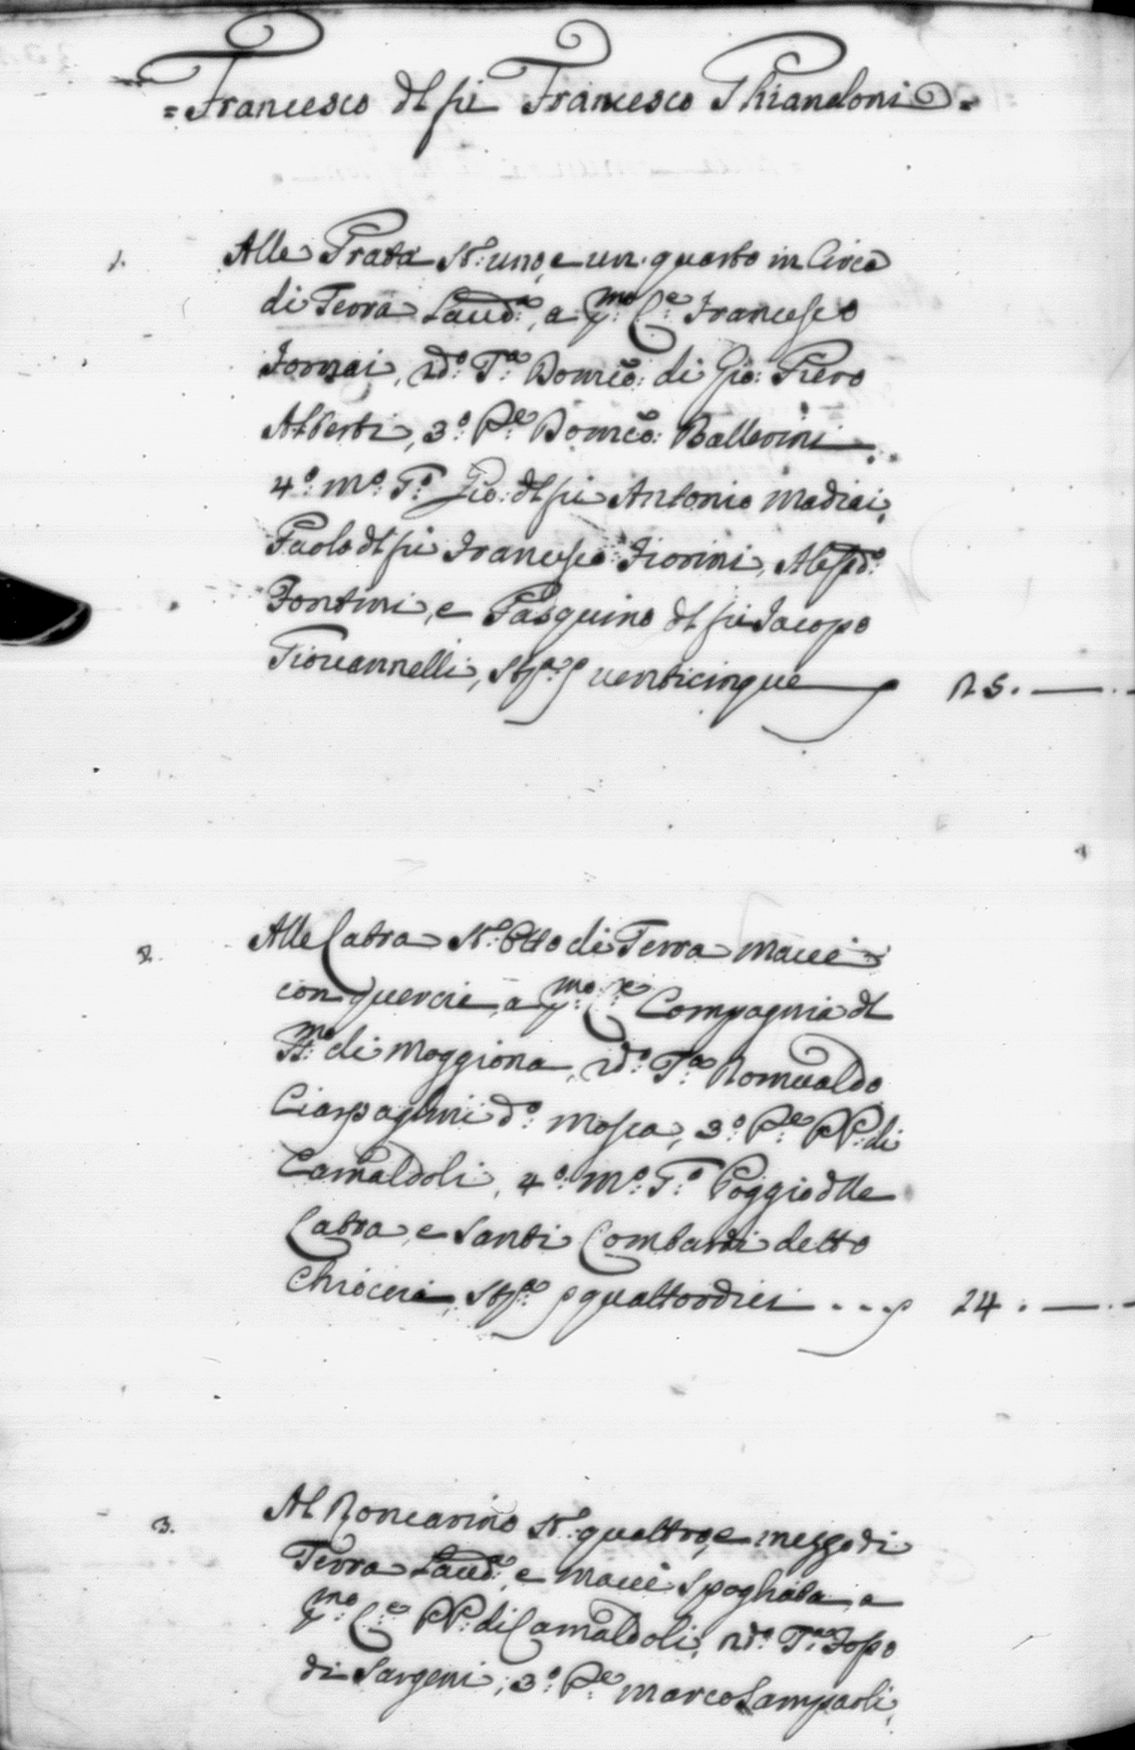 = Francesco dl fu Francesco Ghiandoni =
1. Alle Prata St:o uno, e un quarto in Circa
di Terra Laud:a, a p:mo C:e Francesco
Fornai, 2d:o T:a Domco: di Gio: Piero
Alberti, 3:o P:e Domco: Ballerini
4:o m:o T:o Gio: dl fu Antonio Madiai,
Paolo dl fu Francesco Fiorini, Alessd:o
Fontini, e Pasquino dl fu Iacopo
Giovannelli, venticinque 25. —
2. Alle Catra St:o Otto di Terra Macci:
con querce, a p:mo C:e Compagnia dl
SS:mo di Moggiona, 2d:o T:a Romualdo
Ciarpaglini d:o Mosca, 3:o P:e PP: di
Camaldoli, 4:o m:o T:o Poggio dlle
Catra, e Santi Lombardi detto
quattordici . . . 24. —
3. Al Roncarino St:o quattro, e mezzo di
Terra Laud:a, e Macci: Spogliata, a
p:mo C:e PP: di Camaldoli, 2d:o T:a Fosso
di Sargeni, 3:o P:e Marco Sampaoli,